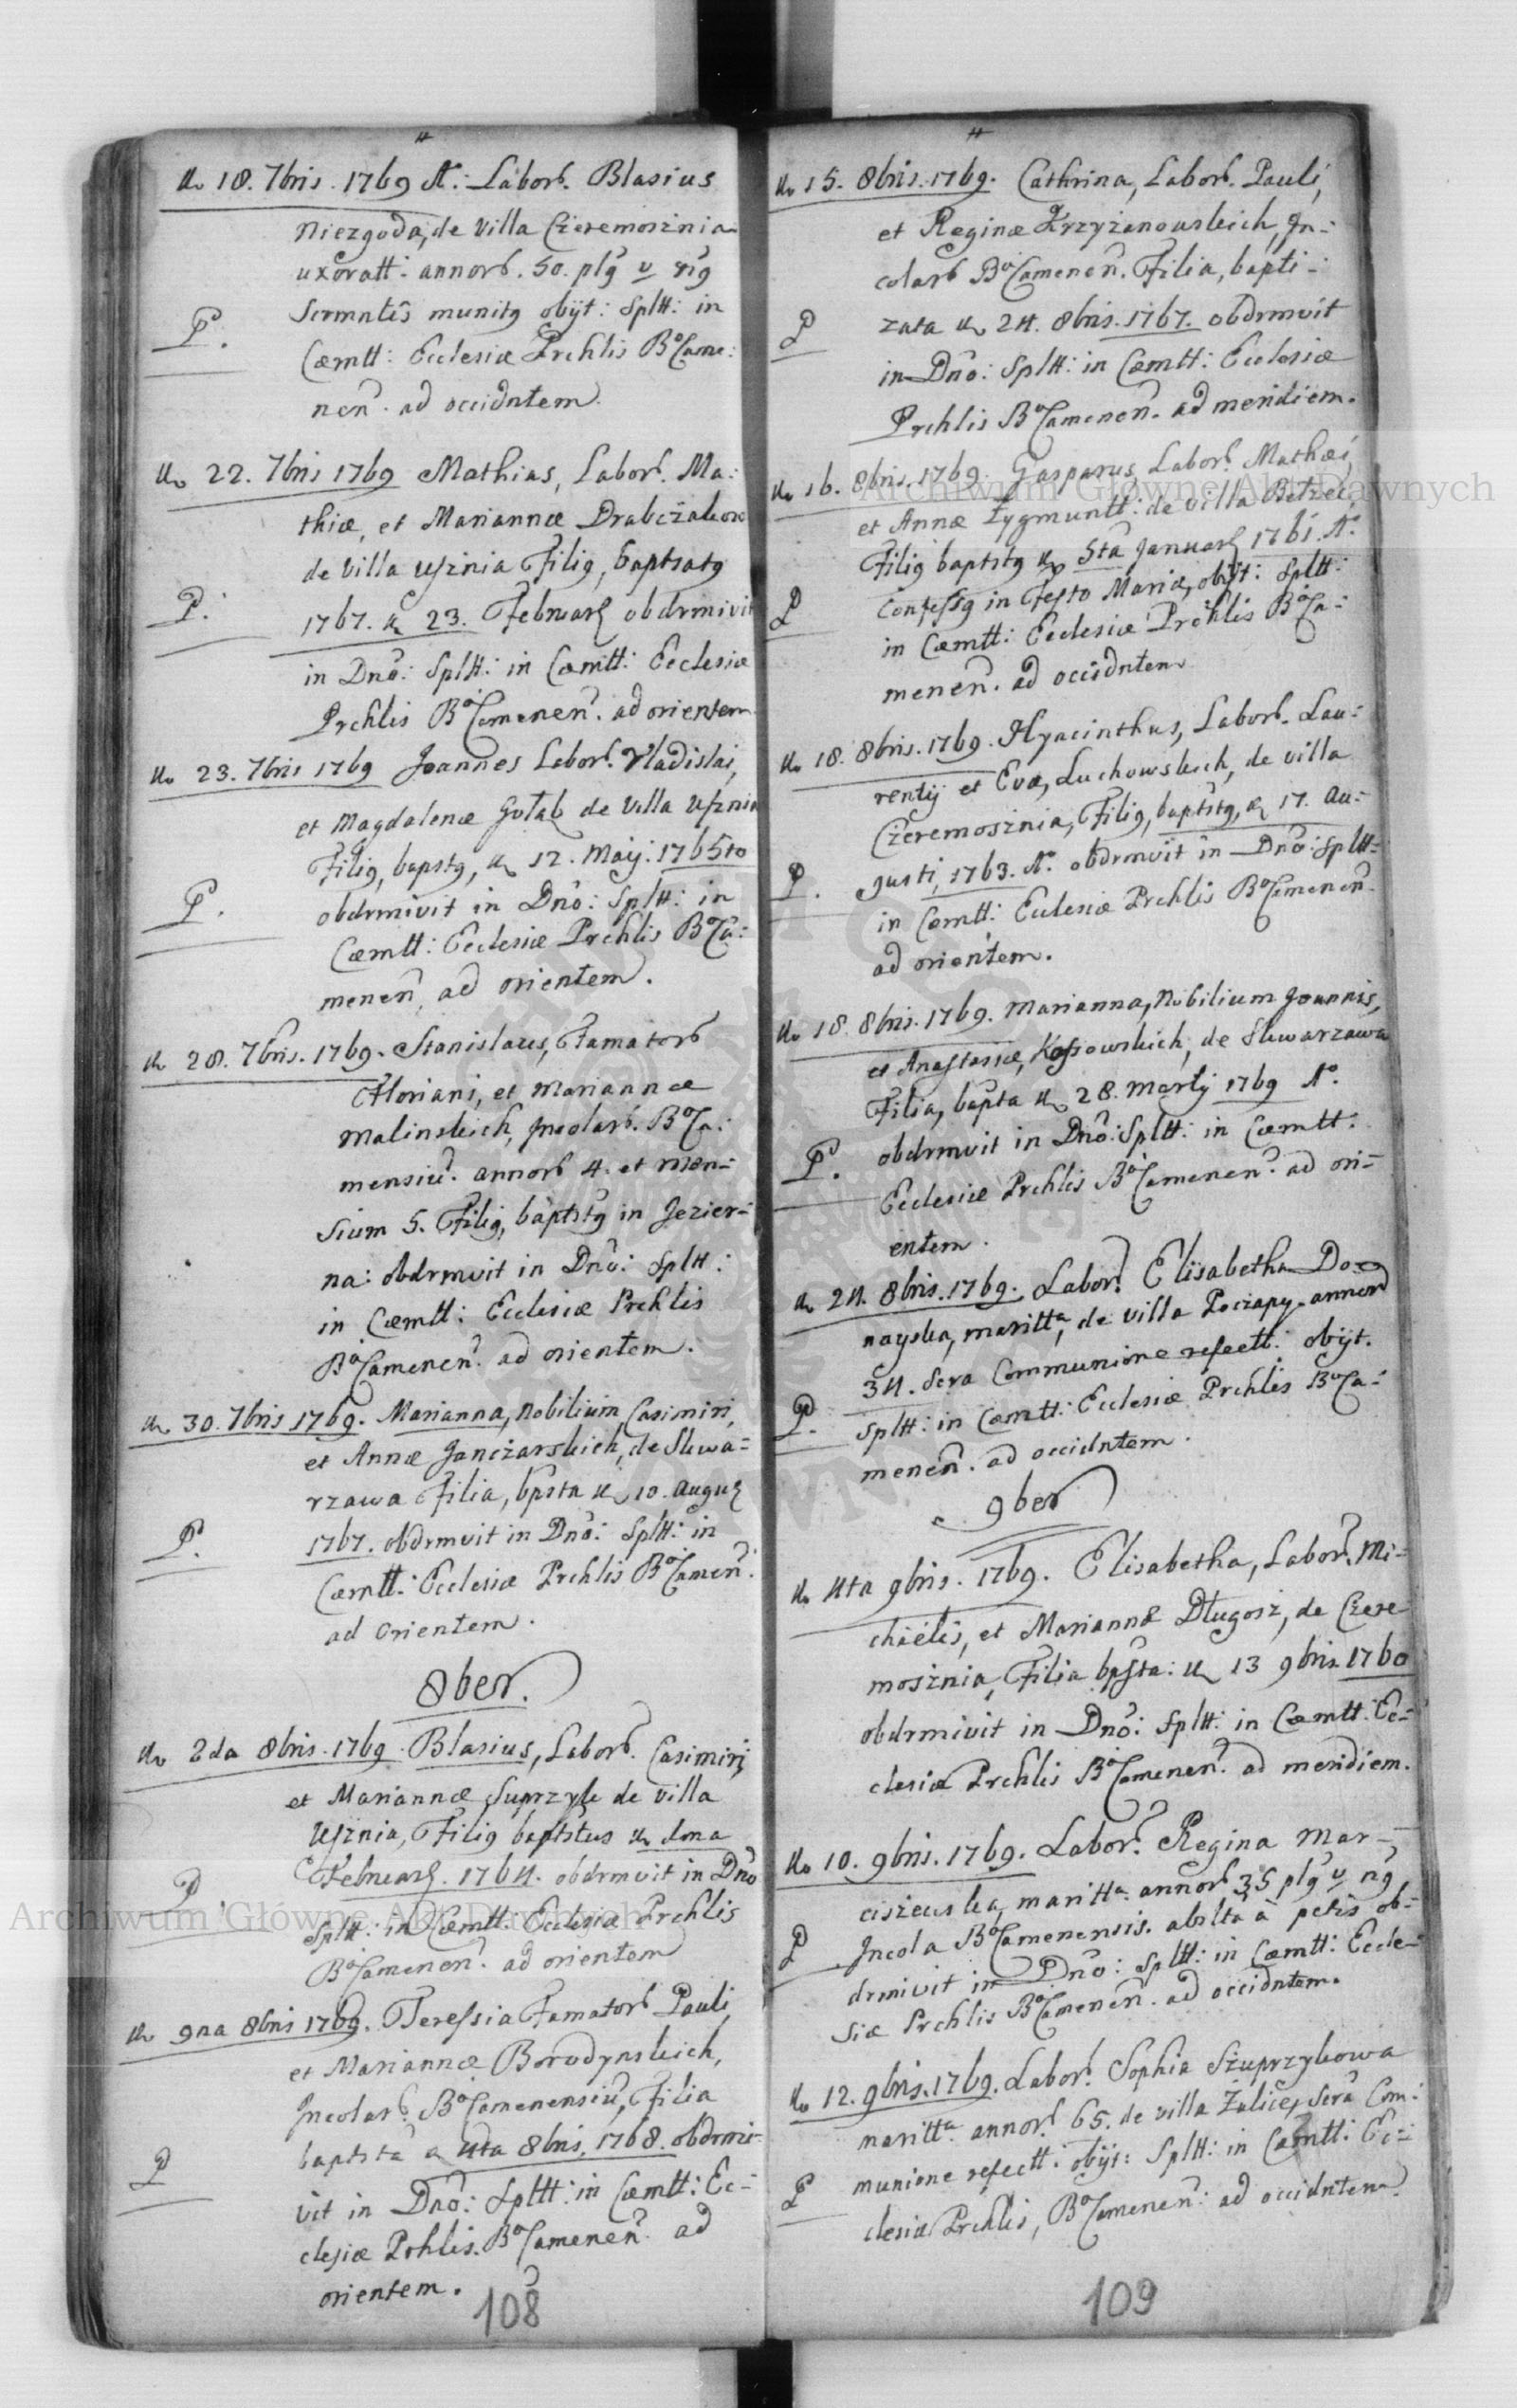 18. 7bris. 1769 A: Labor. Blasius
Niezgoda, de Villa Czeremosznia
uxoratt: annor. 50. plg v ng
Scrmntis munitg obijt: Spltt: in
P.
Cæmtt: Ecclesiæ Prchlis BoCame:
nen. ad occidntem.
22. 7bris 1769 Mathias, Labor. Ma:
thiæ, et Mariannæ Drabczakow
de Villa Usznia Filig, baptsatg
P.
1767. 23. Februar obdrmivit
in Dno: Spltt: in Cæmtt: Ecclesiæ
Prchlis BoCamenen. ad orientem.
23. 7bris 1769 Joannes Labor. Vladislai,
et Magdalenæ Gołąb de Villa Usznia
Filig, bapstg, 12. Maij: 1765to
P.
obdrmivit in Dno: Spltt: in
Cæmtt: Ecclesiæ Prchlis BoCa:
menen, ad orientem.
28. 7bris. 1769. Stanislaus, Famator
Floriani, et Mariannæ
Malinskich, Incolar. BoCa:
mensiu. annor 4. et men=
sium 5. Filig, baptstg in Jezier=
na: obdrmvit in Dno: Spltt:
in Cæmtt: Ecclesiæ Prchlis
BoCamenen. ad orientem.
30. 7bris 1769. Marianna, Nobilium, Casimiri,
et Annæ Janczarskich, de Skwa=
rzawa Filia, bpsta 10. Augus
P.
1767. obdrmvit in Dno: Spltt: in
Cæmtt: Ecclesiæ Prchlis BoCamen:
ad Orientem.
8ber.
2da 8bris. 1769. Blasius, Labor. Casimiri,
et Mariannæ Suprzyk de villa
Usznia, Filig baptstus 1ma
Februar. 1764. obdrmvit in Dno
P.
Spltt: in Cæmtt: Ecclesiæ Prchlis
BoCamenen. ad orientem
9na 8bris 1769. Teressia Famator Pauli,
et Mariannæ Borodynskich,
Incolar. BoCamenensiu, Filia
baptsta a 4ta 8bris. 1768. obdrmi=
P
vit in Dno: Spltt: in Cæmtt: Ec=
clesiæ Prhlis. BoCamenen. ad
orientem.
108
15. 8bris. 1769. Cathrina, Labor. Pauli,
et Reginæ Krzyżanowskich, In=
colar BoCamenen. Filia, bapti=
P
zata 24. 8bris. 1767. obdrmvit
in Dno: Spltt: in Cæmtt: Ecclesiæ
Prchlis BoCamenen. ad meridiem.
16. 8bris. 1769. Gasparus, Labor. Mathæi,
et Annæ Zygmuntt: de villa Bełzec,
Filig baptstg 5ta Januar 1761. Ao.
P
Confessg in Festo Mariæ, obijt: Spltt:
in Cæmtt: Ecclesiæ Prchlis BoCa=
menen. ad occidntem
18. 8bris. 1769. Hyacinthus, Labor. Lau=
rentij et Eva, Luchowskich, de villa
Czeremosznia, Filig, baptstg, 17. Au=
P.
gusti, 1763. Ao. obdrmvit in Dno: Spltt:
in Cæmtt: Ecclesiæ Prchlis BoCamenen.
ad orientem.
18. 8bris. 1769. Marianna, Nobilium Joannis,
et Anastasiæ, Kossowskich, de Skwarzawa
Filia, bapta 28. Martij 1769 Ao.
P.
obdrmvit in Dno: Spltt: in Cæmtt:
Ecclesiæ Prchlis BoCamenen. ad ori=
entem.
24. 8bris. 1769. Labor. Elisabetha Do=
nayska, maritta, de villa Poczapy. annor
34. Scra Communione refectt: obijt.
P.
Spltt: in Cæmtt: Ecclesiæ Prchlis BoCa=
menen. ad occidntem.
9ber
4ta 9bris. 1769. Elisabetha, Labor. Mi=
chäelis, et Mariannæ Długosz, de Czere
mosznia, Filia bpsta: 13 9bris. 1760
obdrmivit in Dno: Spltt: in Cæmtt: Ec=
clesiæ Prchlis BoCamenen. ad meridiem.
10. 9bris. 1769. Labor. Regina Mar=
ciszewska, maritta annor 35 plg v ng
P
Incola BoCamenensis. abslta à petis ob=
drmivit in Dno: Spltt: in Cæmtt: Eccle=
siæ Prchlis BoCamenen. ad occidntem.
12. 9bris. 1769. Labor. Sophia Szuprzykowa
maritta annor. 65. de villa Żulice, Scra Com:
P
munione refectt: obijt: Spltt: in Cæmtt: Ec=
clesiæ Prchlis, BoCamenen: ad occidntem.
109
Archiwum Główne Akt Dawnych
Archiwum Główne Akt Dawnych